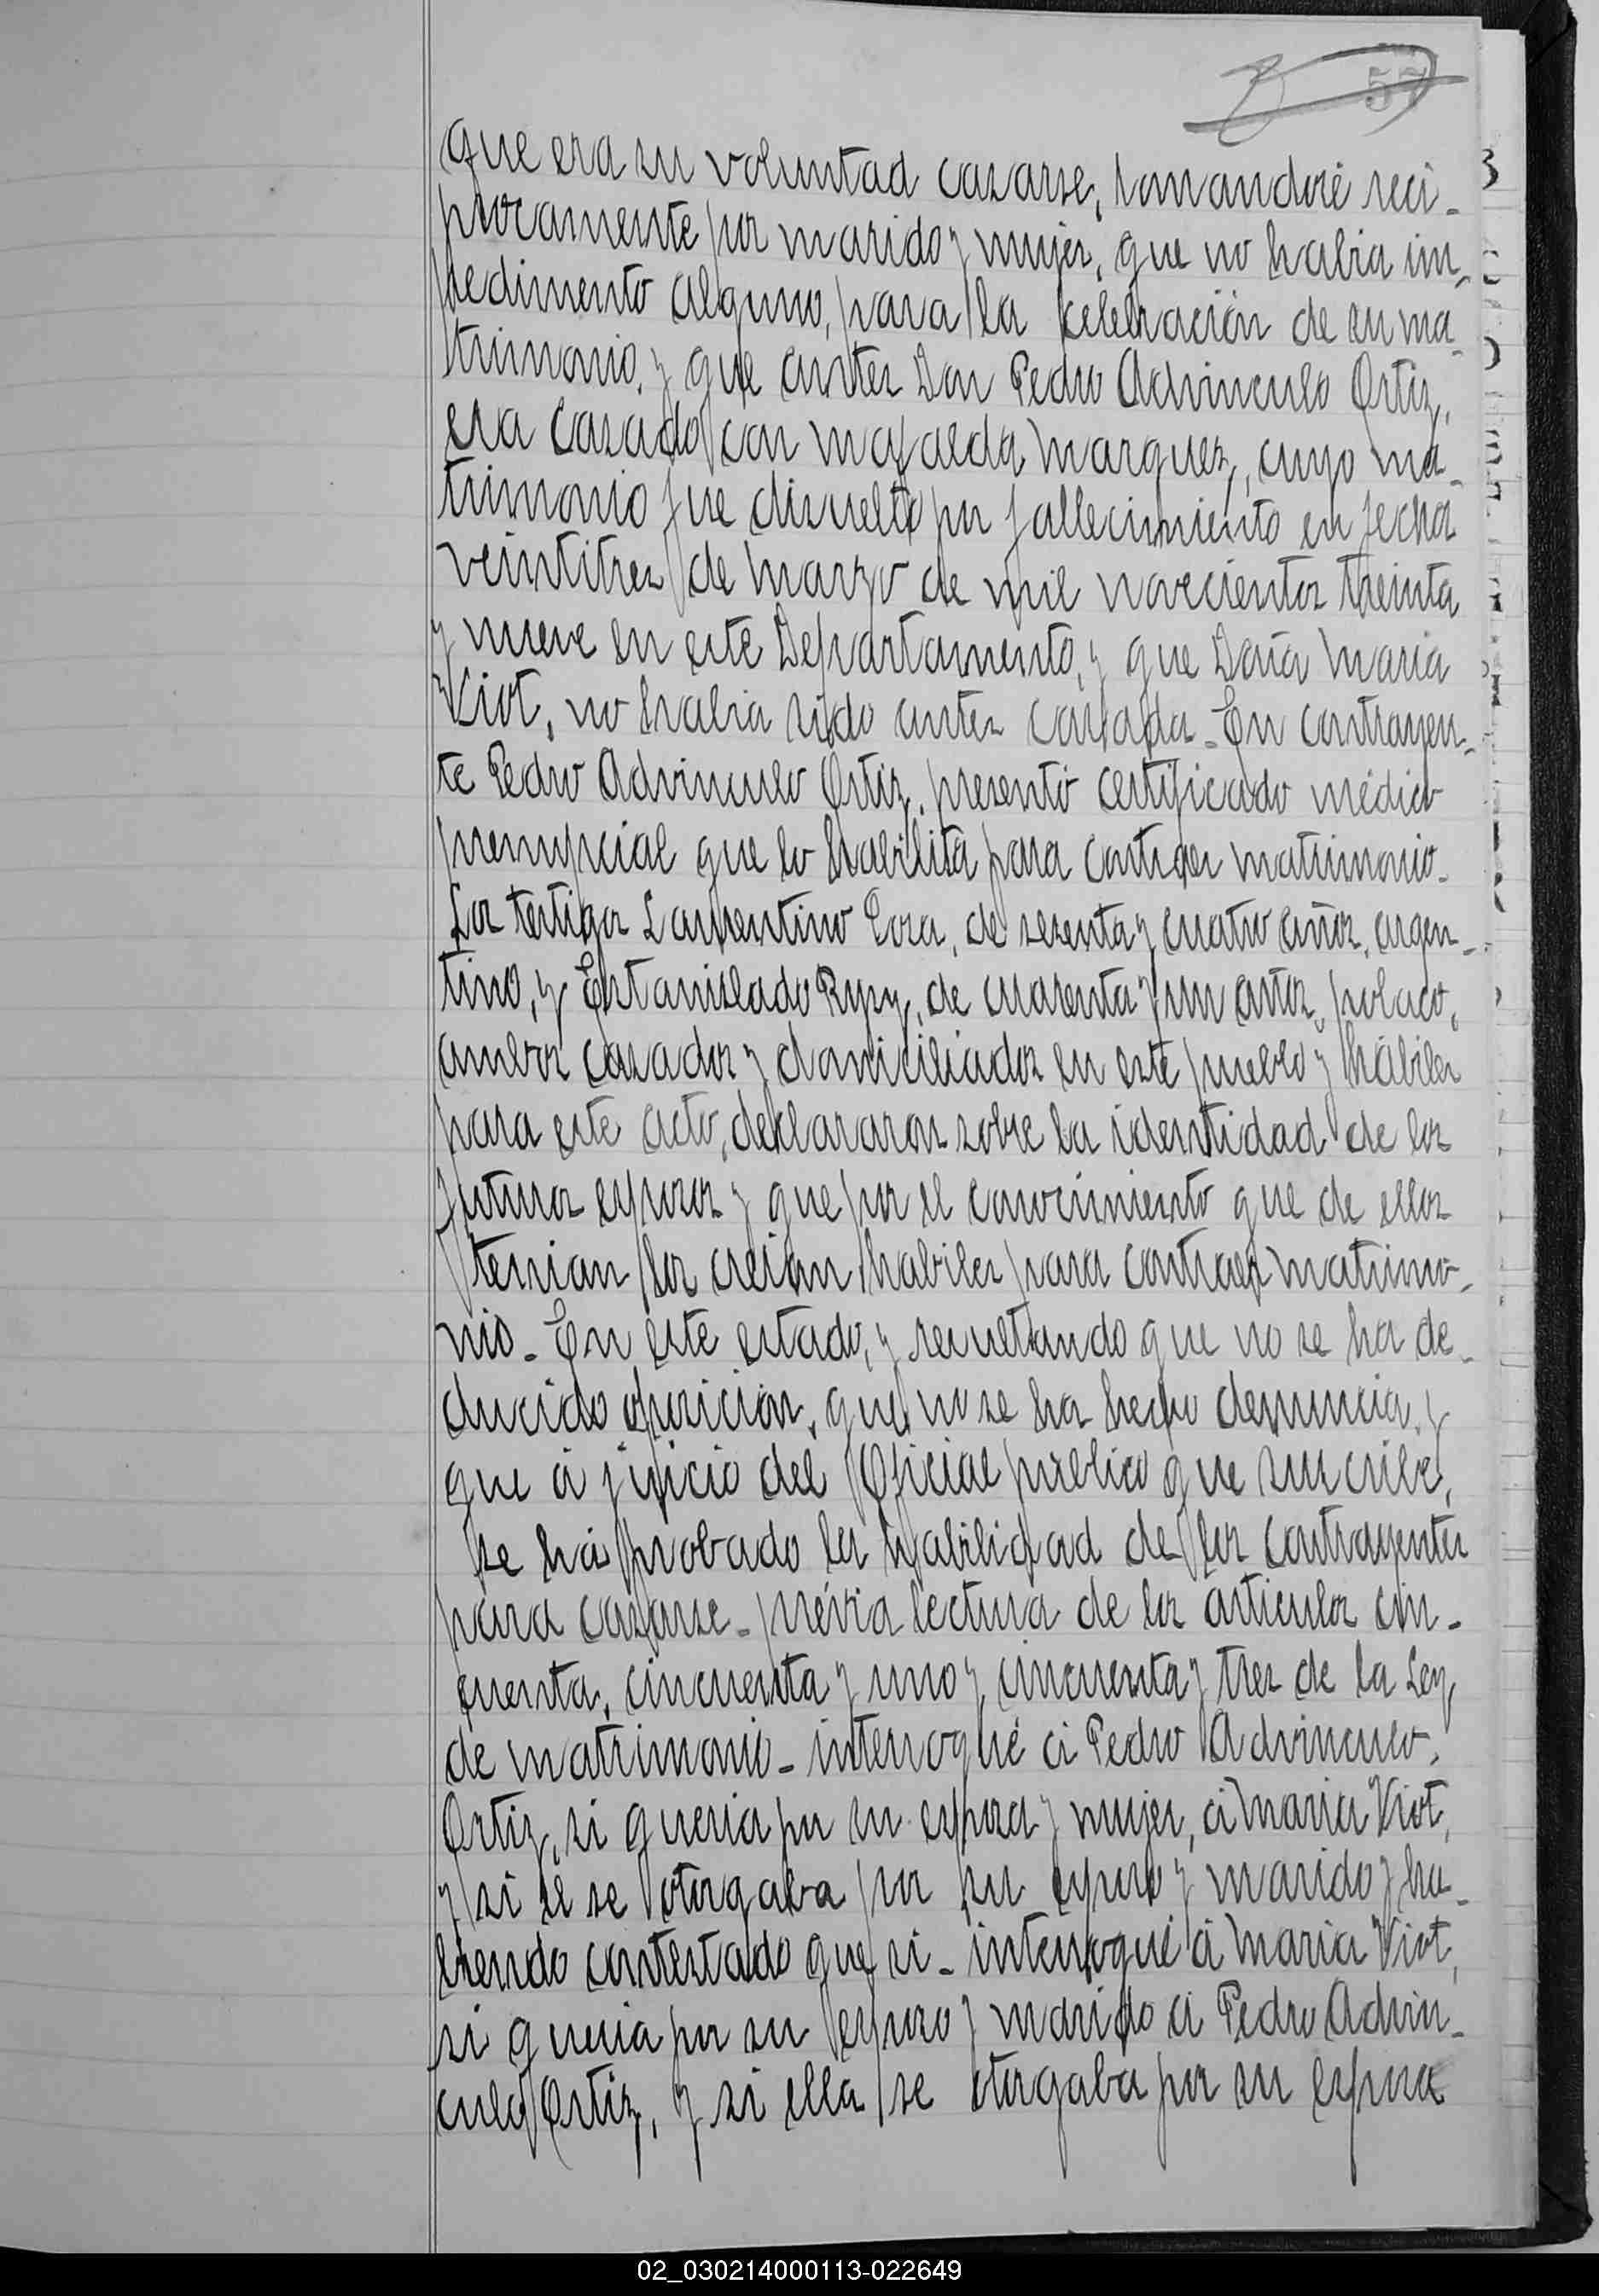 57
que era su voluntad casarse, tomandose reci-
procamente por marido y mujer, que no habia im-
pedimento alguno, para la celebración de su ma-
trimonio, y que antes Don Pedro Advinculo Ortiz,
era casado con Mafalda Marquez, cuyo ma-
trimonio fue disuelto por fallecimiento en fecha
veintitres de Marzo de mil novecientos treinta
y nueve en este Departamento, y que Doña Maria
Kiot, no habia sido antes casada. En contrayen-
te Pedro Advinculo Ortiz, presentó certificado médico
prenupcial que lo habilita para contraer matrimonio.
Los testigos Laurentino de sesenta y cuatro años, argen-
tino, y Estanislado de cuarenta y un años, polaco,
ambos casados y domiciliados en este pueblo y hábiles
para este acto, declararon sobre la identidad de los
futuros esposos y que por el conocimiento que de ellos
tenian los creian habiles para contraer matrimo-
nio. En este estado, y resultando que no se ha de-
ducido oposicion, que no se ha hecho denuncia, y
que á juicio del Oficial público que suscribe,
se há probado la habilidad de los contrayentes
para casarse - prévia lectura de los articulos cin-
cuenta, cincuenta y uno y cincuenta y tres de la Ley
de matrimonio - interrogué á Pedro Advinculo
Ortiz, si queria por su esposa y mujer, á Maria Kiot,
y si él se otorgaba por su esposo y marido y ha-
biendo contestado que si - interrogué á Maria Kiot,
si queria por su esposo y marido á Pedro Advin-
culo Ortiz, y si ella se otorgaba por su esposa
02_030214000113-022649